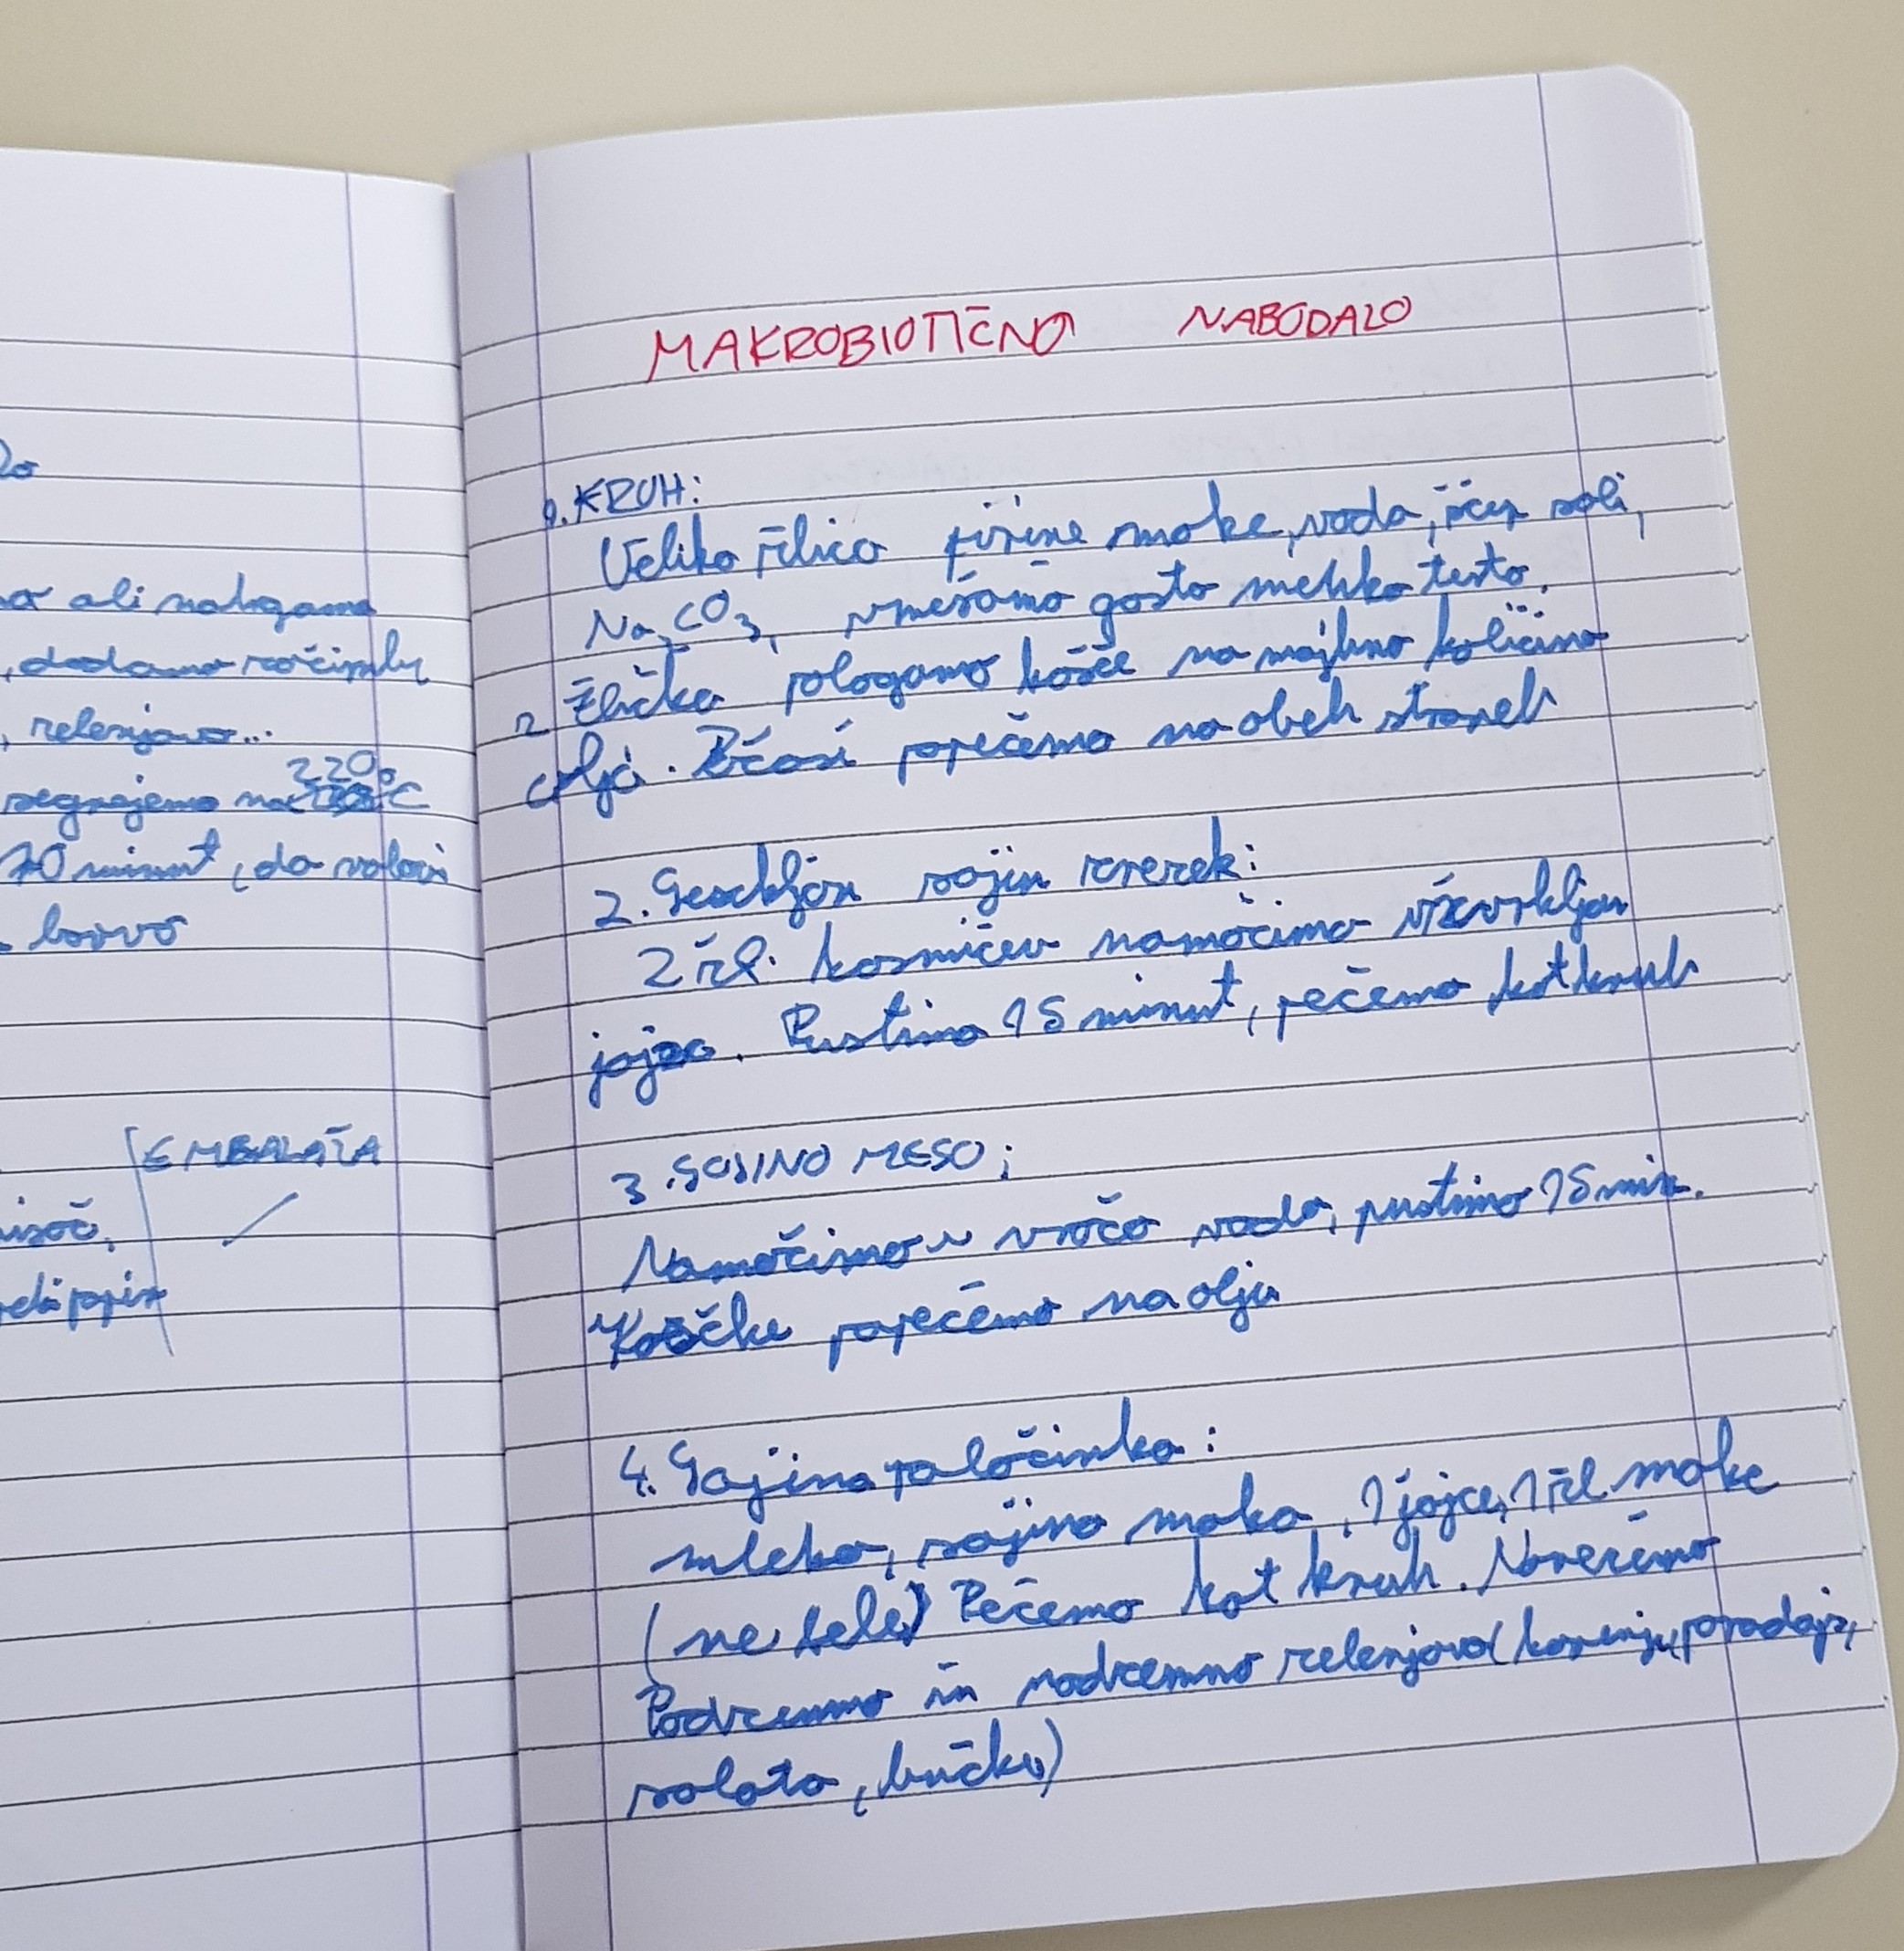 lo
ali nalagamo
, dodamo začimbe
, zelenjavo...
segrejemo na 220°C
10 minut, da
barvo
EMBALAŽA
MAKROBIOTIČNO NABODALO
1. KRUH:
Veliko žlico pirine moke, voda, ščep soli,
Na2CO3, vmešamo gosto mehko testo.
Z žličko pologamo košče na majhno količino
olja. Počasi popečemo na obeh straneh
2. sojin zrezek:
2 žl. kosmičev namočimo v razvrkljan
jajce. Pustimo 15 minut, pečemo kot kruh
3. SOJINO MESO:
Namočimo v vročo vodo, pustimo 15 min.
Koščke popečemo na olju
4. Sojina palačinka:
mleko, sojina moka, 1 jajce, 1 žl moke
(ne bele) Pečemo kot kruh. Narežemo
Podzemno in nadzemno zelenjavo (korenje, paradajz,
solata, bučke)